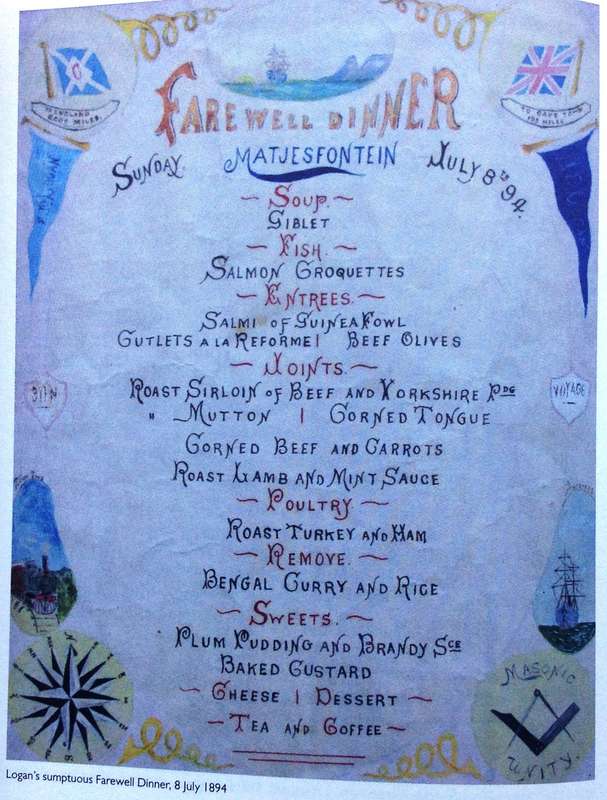 TO ENGLAND
6000 MILES.
TO CAPE TOWN
195 MILES
FAREWELL DINNER
SUNDAY. MATJESFONTEIN JULY 8TH 94.
~ SOUP. ~
GIBLET
~ FISH. ~
SALMON CROQUETTES
~ ENTREES. ~
SALMI OF GUINEA FOWL
CUTLETS A LA REFORME | BEEF OLIVES
~ JOINTS. ~
ROAST SIRLOIN OF BEEF AND YORKSHIRE PDG
" MUTTON | CORNED TONGUE
CORNED BEEF AND CARROTS
ROAST LAMB AND MINT SAUCE
BON
VOYAGE
~ POULTRY. ~
ROAST TURKEY AND HAM
~ REMOVE. ~
BENGAL CURRY AND RICE
~ SWEETS. ~
PLUM PUDDING AND BRANDY SCE
BAKED CUSTARD
~ CHEESE | DESSERT ~
~ TEA AND COFFEE ~
MASONIC
UNITY.
Logan's sumptuous Farewell Dinner, 8 July 1894